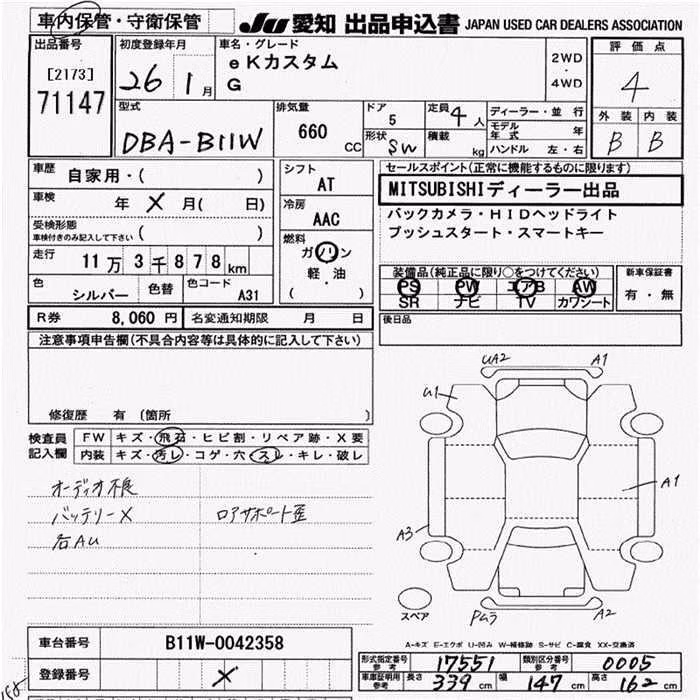 車内保管・守衛保管
JU 愛知 出品申込書 JAPAN USED CAR DEALERS ASSOCIATION
出品番号
[2173]
71147
初度登録年月
26 1月
車名・グレード
eKカスタム
G
2WD
・
4WD
評価点
4
外装 内装
B B
型式
DBA-B11W
排気量
660
cc
ドア
5
定員
4人
形状
SW
積載
kg
ディーラー・並行
モデル年式 年
ハンドル 左・右
車歴 自家用・( )
車検 年 X 月( 日)
受検形態
車検付きのみ記入して下さい ( )
走行 11万3千878km
色 シルバー 色替 色コード A31
シフト
AT
冷房
AAC
燃料
ガソリン
軽・油
( )
セールスポイント(正常に機能するものに限ります)
MITSUBISHIディーラー出品
バックカメラ・HIDヘッドライト
プッシュスタート・スマートキー
装備品(純正品に限り○をつけてください)
PS PW エアB AW
SR ナビ TV カワシート
新車保証書
有・無
R券 8,060 円 名変通知期限 月 日
後日品
注意事項申告欄(不具合内容等は具体的に記入して下さい)
修復歴 有 (箇所 )
検査員記入欄
FW キズ・飛石・ヒビ割・リペア跡・X要
内装 キズ・汚レ・コゲ・穴・スレ・キレ・破レ
オーディオ不良
バッテリーX ロアサポート歪
右AU
UA2 A1
U1
A1
A3
スペア
PムラA2
A-キズ E-エクボ U-凹み W-補修跡 S-サビ C-腐食 XX-交換済
車台番号 B11W-0042358
登録番号 X
形式指定番号 参考 17551 類別区分番号 参考 0005
車庫証明用 参考 長さ 339 cm 幅 147 cm 高さ 162 cm